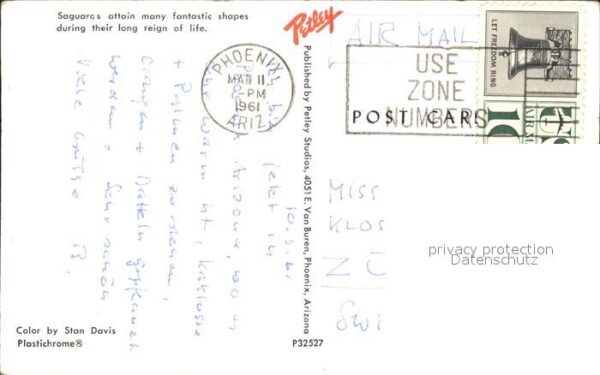 Saguaros attain many fantastic shapes
during their long reign of life.
Petley
AIR MAIL
LET FREEDOM RING
PHOENIX
MAR 11
PM
1961
ARIZ.
USE
ZONE
NUMBERS
POST CARD
10.3.61
jetzt in
Arizona, wo es
warm ist,
+ Palmen zu sehen,
Orangen + Datteln gepflanzt
werden. Sehr schön
Viele Grüsse B.
Published by Petley Studios, 4051 E. Van Buren, Phoenix, Arizona
MISS
KLOS
ZÜ
SWI
privacy protection
Datenschutz
Color by Stan Davis
Plastichrome®
P32527